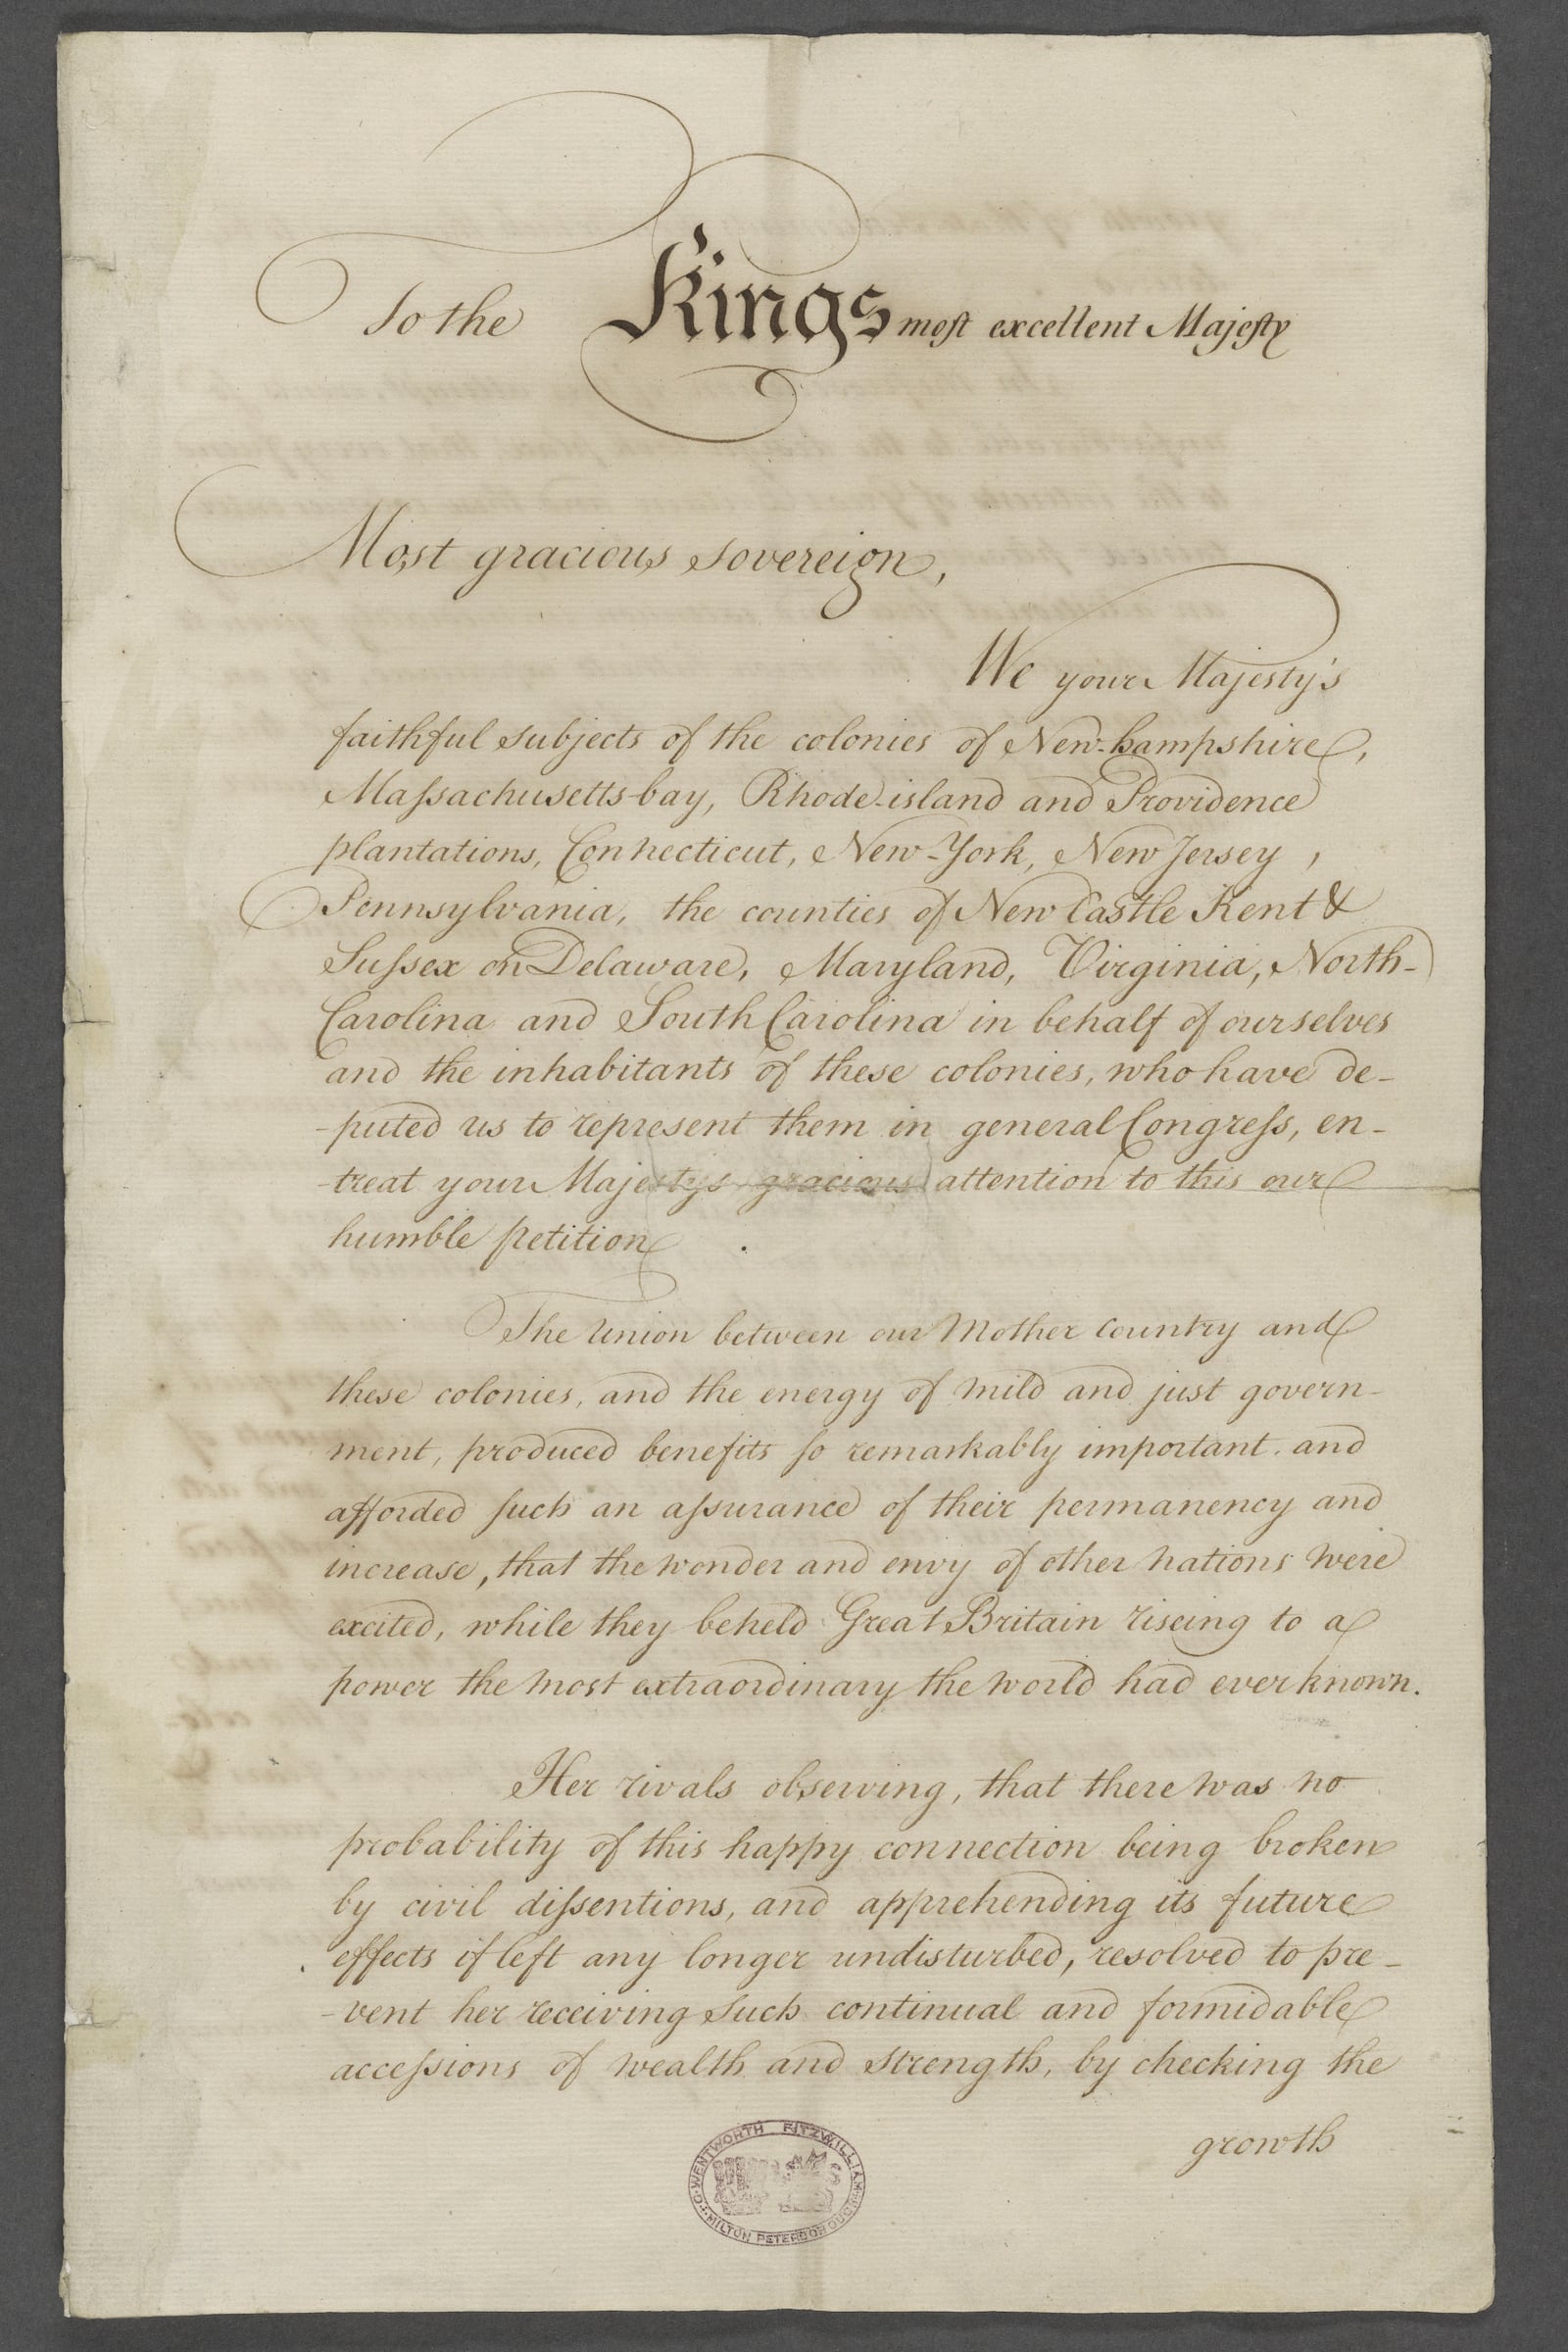 To the Kings most excellent Majesty
Most gracious sovereign,
We your Majesty's
faithful subjects of the colonies of New-hampshire,
Massachusetts-bay, Rhode-island and Providence
plantations, Connecticut, New-York, New Jersey,
Pennsylvania, the counties of New Castle Kent &
Sussex on Delaware, Maryland, Virginia, North-
Carolina and South Carolina in behalf of ourselves
and the inhabitants of these colonies, who have de-
-puted us to represent them in general Congress, en-
-treat your Majestys gracious attention to this our
humble petition.
The Union between our Mother Country and
these colonies, and the energy of mild and just govern-
ment, produced benefits so remarkably important, and
afforded such an assurance of their permanency and
increase, that the wonder and envy of other Nations were
excited, while they beheld Great Britain riseing to a
power the most extraordinary the world had ever known.
Her rivals observing, that there was no
probability of this happy connection being broken
by civil dissentions, and apprehending its future
effects if left any longer undisturbed, resolved to pre-
-vent her receiving such continual and formidable
accessions of wealth and strength, by checking the
growth
WENTWORTH FITZWILLIAM
MILTON PETERBOROUGH